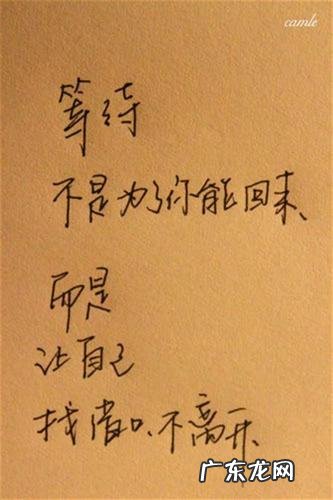 camle
等待
不是为了你能回来、
而是
让自己
找借口、不离开、
广东龙网